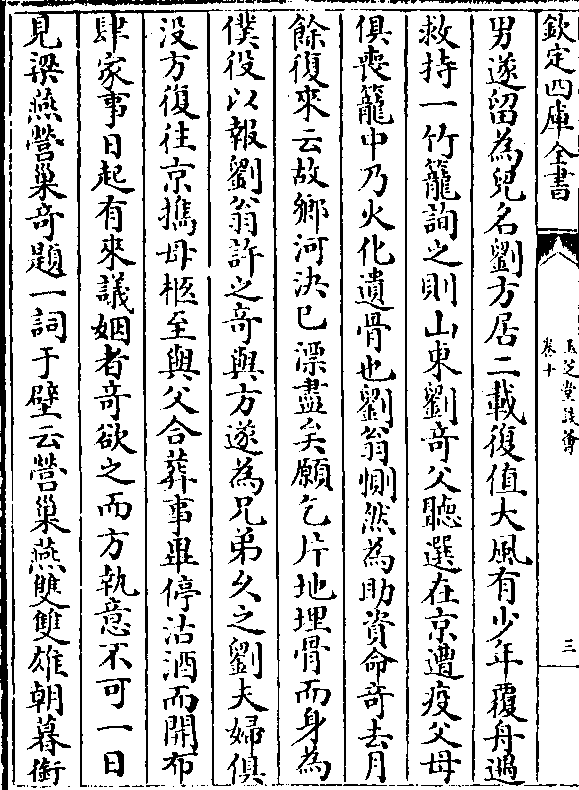 欽定四庫全書
玉芝堂談薈
卷十
三
男遂留為兒名劉方居二載復值大風有少年覆舟遇
救持一竹籠詢之則山東劉竒父聽選在京遭疫父母
俱喪籠中乃火化遺骨也劉翁惻然為助資命竒去月
餘復來云故鄉河決已漂盡矣願乞片地埋骨而身為
僕役以報劉翁許之竒與方遂為兄弟乆之劉夫婦俱
没方復往京攜母柩至與父合葬事畢停沽酒而開布
肆家事日起有來議姻者竒欲之而方執意不可一日
見梁燕營巢竒題一詞于壁云營巢燕雙雙雄朝暮銜